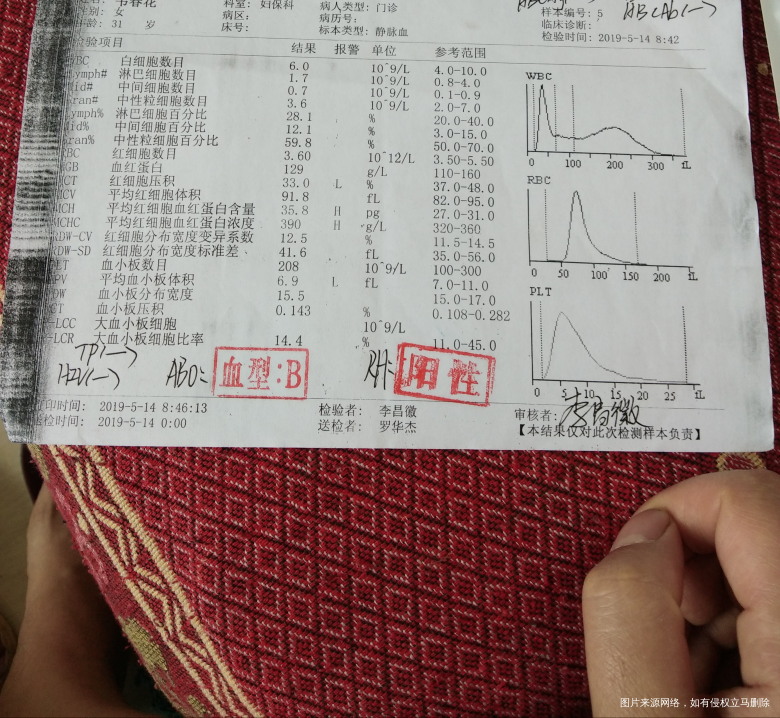 韦春花 科室: 妇保科 病人类型: 门诊
性别: 女 病区: 病历号: 样本编号: 5 HBCAb(一)
31 岁 床号: 标本类型: 静脉血 临床诊断:
检验时间: 2019-5-14 8:42
检验项目 结果 报警 单位 参考范围
WBC 白细胞数目 6.0 10^9/L 4.0-10.0
Lymph# 淋巴细胞数目 1.7 10^9/L 0.8-4.0
Mid# 中间细胞数目 0.7 10^9/L 0.1-0.9
Gran# 中性粒细胞数目 3.6 10^9/L 2.0-7.0
Lymph% 淋巴细胞百分比 28.1 % 20.0-40.0
Mid% 中间细胞百分比 12.1 % 3.0-15.0
Gran% 中性粒细胞百分比 59.8 % 50.0-70.0
RBC 红细胞数目 3.60 10^12/L 3.50-5.50
HGB 血红蛋白 129 g/L 110-160
HCT 红细胞压积 33.0 L % 37.0-48.0
MCV 平均红细胞体积 91.8 fL 82.0-95.0
MCH 平均红细胞血红蛋白含量 35.8 H pg 27.0-31.0
MCHC 平均红细胞血红蛋白浓度 390 H g/L 320-360
RDW-CV 红细胞分布宽度变异系数 12.5 % 11.5-14.5
RDW-SD 红细胞分布宽度标准差 41.6 fL 35.0-56.0
PLT 血小板数目 208 10^9/L 100-300
MPV 平均血小板体积 6.9 L fL 7.0-11.0
PDW 血小板分布宽度 15.5 15.0-17.0
PCT 血小板压积 0.143 % 0.108-0.282
P-LCC 大血小板细胞 10^9/L
P-LCR 大血小板细胞比率 14.4 % 11.0-45.0
WBC
0 100 200 300 fL
RBC
0 50 100 150 200 fL
PLT
0 5 10 15 20 25 fL
TP(一)
HIV(一) ABO: 血型:B RH: 阳性
打印时间: 2019-5-14 8:46:13 检验者: 李昌徽 审核者: 李昌徽
送检时间: 2019-5-14 0:00 送检者: 罗华杰 【本结果仅对此次检测样本负责】
图片来源网络，如有侵权立马删除